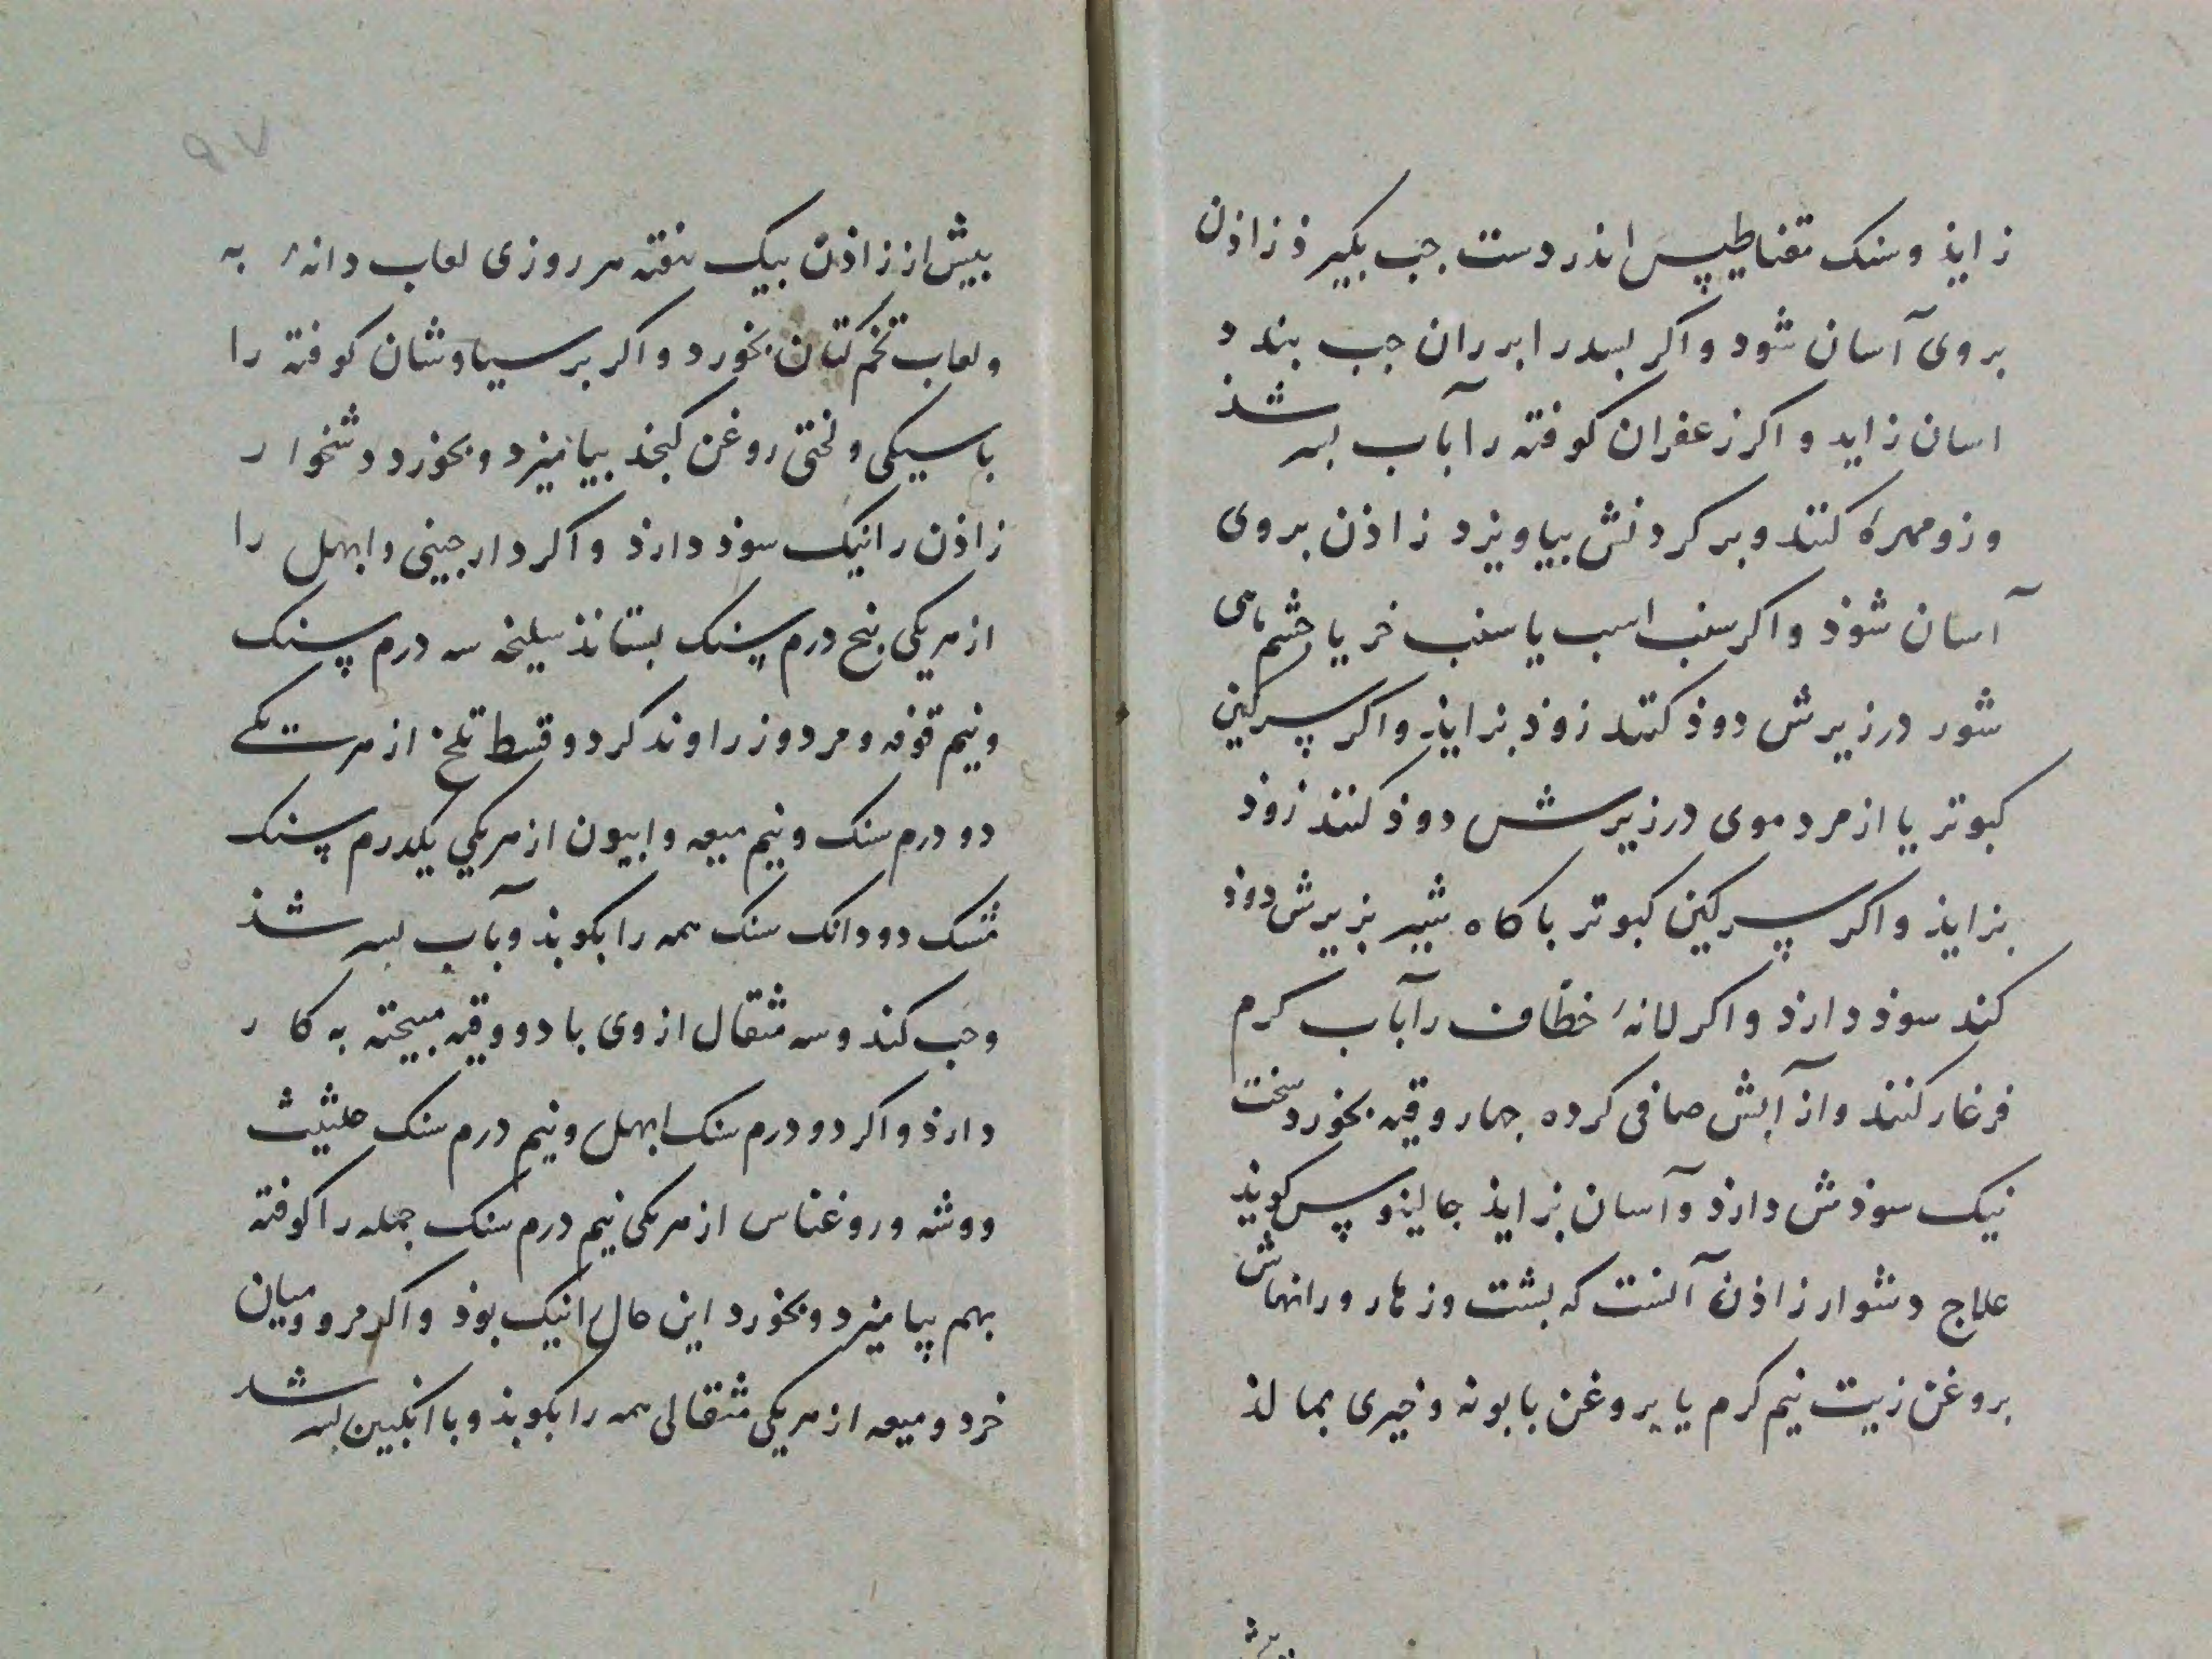 زاید وسنک مقناطیپس اندر دست جب بکیرذ زاذن
بروی آسان شود واکر بسدرا برران جب بندد
اسان زاید واکر زعفران کوفته را بآب بسرشذ
وزو مهره کنند وبر کردنش بیاویزد زاذن بروی
آسان شوذ واکر سنب اسب یا سنب خر یا جشم ماهی
شور درزیرش دوذ کنند زوذ بزایذ واکر پسرکین
کبوتر یا از مردموی درزیرش دوذ کنند زوذ
بزایذ واکر پسرکین کبوتر با کاه شبیر بزیرش دوذ
کند سوذ دارذ واکر لانهٔ خطّاف را بآب کرم
فرغار کنند واز آبش صافی کرده جهار وقیه بخورد سخت
نیک سوذش دارذ وآسان بزایذ جالینوپس کویذ
علاج دشوار زاذن آنست که بشت وزهار ورانهاش
بروغن زیت نیم کرم یا بروغن بابونه وخیری بمالذ
بیش
٩٧
بیش از زاذن بیک هفته هر روزی لعاب دانهٔ به
ولعاب تخم کتان بخورد واکر برسیاوشان کوفته را
با سیکی ولختی روغن کنجذ بیامیزد وبخورد دشخوار
زاذن را نیک سوذ دارذ واکر دارجینی وابهل را
از هریکی بنج درم پسنک بستانذ سلیخه سه درم پسنک
ونیم قوفه ومر دوزراوند کرد وقسط تلخ از هریکی
دو درم سنک ونیم میعه وابیون از هریکی یکدرم پسنک
مشک دو دانک سنک همه را بکوبذ وبآب بسرشذ
وحب کند وسه مثقال ازوی با دو وقیه میبخته به کار
دارذ واکر دو درم سنک ابهل ونیم درم سنک حلتیث
ووشه وروغناس از هریکی نیم درم سنک جمله را کوفته
بهم بیامیزد وبخورد این حال را نیک بوذ واکر مر ومیان
خرد ومیعه از هریکی مثقالی همه را بکوبذ وبا انکبین بسرشد